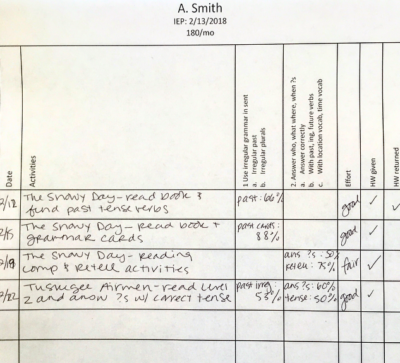 A. Smith
IEP: 2/13/2018
180/mo
Date
Activities
1 Use irregular grammar in sent
a. Irregular past
b. Irregular plurals
2. Answer who, what where, when ?s
a. Answer correctly
b. With past, ing, future verbs
c. With location vocab, time vocab
Effort
HW given
HW returned
The Snowy Day - read book &
find past tense verbs
past: 60%
good ✓ ✓
The Snowy Day - read book +
grammar cards
past cards:
88%
good ✓
The Snowy Day - reading
comp & retell activities
ans ?s: 50%
retell: 75%
fair ✓
2/22 Tuskegee Airmen - read level
2 and answ ?s w/ correct tense
past irreg:
55%
ans ?s: 60%
tense: 50%
good ✓